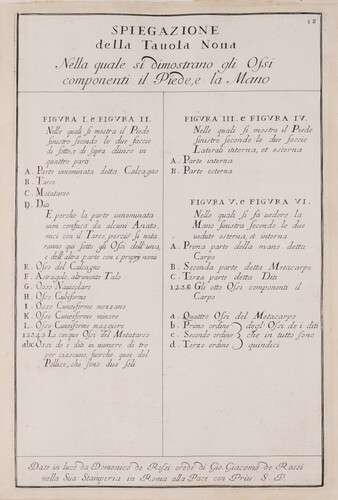 18
SPIEGAZIONE
della Tauola Nona
Nella quale si dimostrano gli Ossi
componenti il Piede, e la Mano
FIGVRA I. e FIGVRA II.
Nelle quali si mostra il Piede
sinistro secondo le due faccie
di sotto, e di sopra diuiso in
quattro parti
A. Parte innominata detta Calcagno
B. Tarso
C. Metatarso
D. Diti
E perche la parte innominata
uien confusa da alcuni Anato-
mici con il Tarso, perciò si nota-
ranno qui sotto gli Ossi dell'una,
e dell'altra parte con i proprj nomi
E. Osso del Calcagno
F. Astragolo, altrimente Talo
G. Osso Nauicolare
H. Osso Cubiforme
I. Osso Cuneiforme mezzano
K. Osso Cuneiforme minore
L. Osso Cuneiforme maggiore
12345 Le cinque Ossi del Metatarso
abc Ossi de i diti in numero di tre
per ciascuno, fuorche quei del
Pollice, che sono due soli
FIGVRA III. e FIGVRA IV.
Nelle quali si mostra il Piede
sinistro secondo le due faccie
Laterali interna, et esterna
A. Parte interna
B. Parte esterna
FIGVRA V. e FIGVRA VI.
Nelle quali si fà uedere la
Mano sinistra secondo le due
uedute esterna, et interna
A. Prima parte della mano detta
Carpo
B. Seconda parte detta Metacarpo
C. Terza parte detta Diti
1238 Gli otto Ossi componenti il
Carpo
a. Quattro Ossi del Metacarpo
b. Primo ordine degl Ossi de i diti
c. Secondo ordine che in tutto sono
d. Terzo ordine quindici
Dato in luce da Domenico de Rossi erede di Gio. Giacomo de Rossi
nella Sua Stamperia in Roma alla Pace con Priu. S. P.